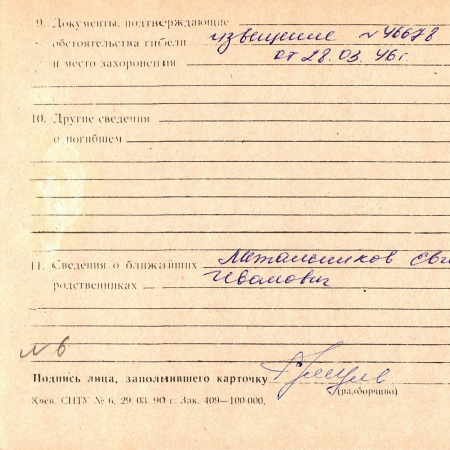 9. Документы, подтверждающие
обстоятельства гибели извещение №46678
и место захоронения от 28.03.46г.
10. Другие сведения
о погибшем
11. Сведения о ближайших Метальников
родственниках Иванович
№6
Подпись лица, заполнившего карточку
(разборчиво)
Киев. СПТУ № 6, 29. 03. 90 г. Зак. 409—100 000.